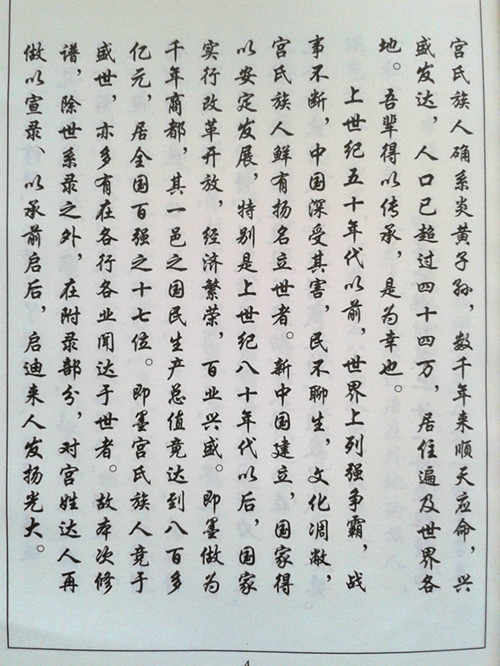 宫氏族人确系炎黄子孙，数千年来顺天应命，兴
盛发达，人口已超过四十四万，居住遍及世界各
地。吾辈得以传承，是为幸也。
上世纪五十年代以前，世界上列强争霸，战
事不断，中国深受其害，民不聊生，文化凋敝，
宫氏族人鲜有扬名立世者。新中国建立，国家得
以安定发展，特别是上世纪八十年代以后，国家
实行改革开放，经济繁荣，百业兴盛。即墨做为
千年商都，其一邑之国民生产总值竟达到八百多
亿元，居全国百强之十七位。即墨宫氏族人竞于
盛世，亦多有在各行各业闻达于世者。故本次修
谱，除世系录之外，在附录部分，对宫姓达人再
做以宣录、以承前启后，启迪来人发扬光大。
4